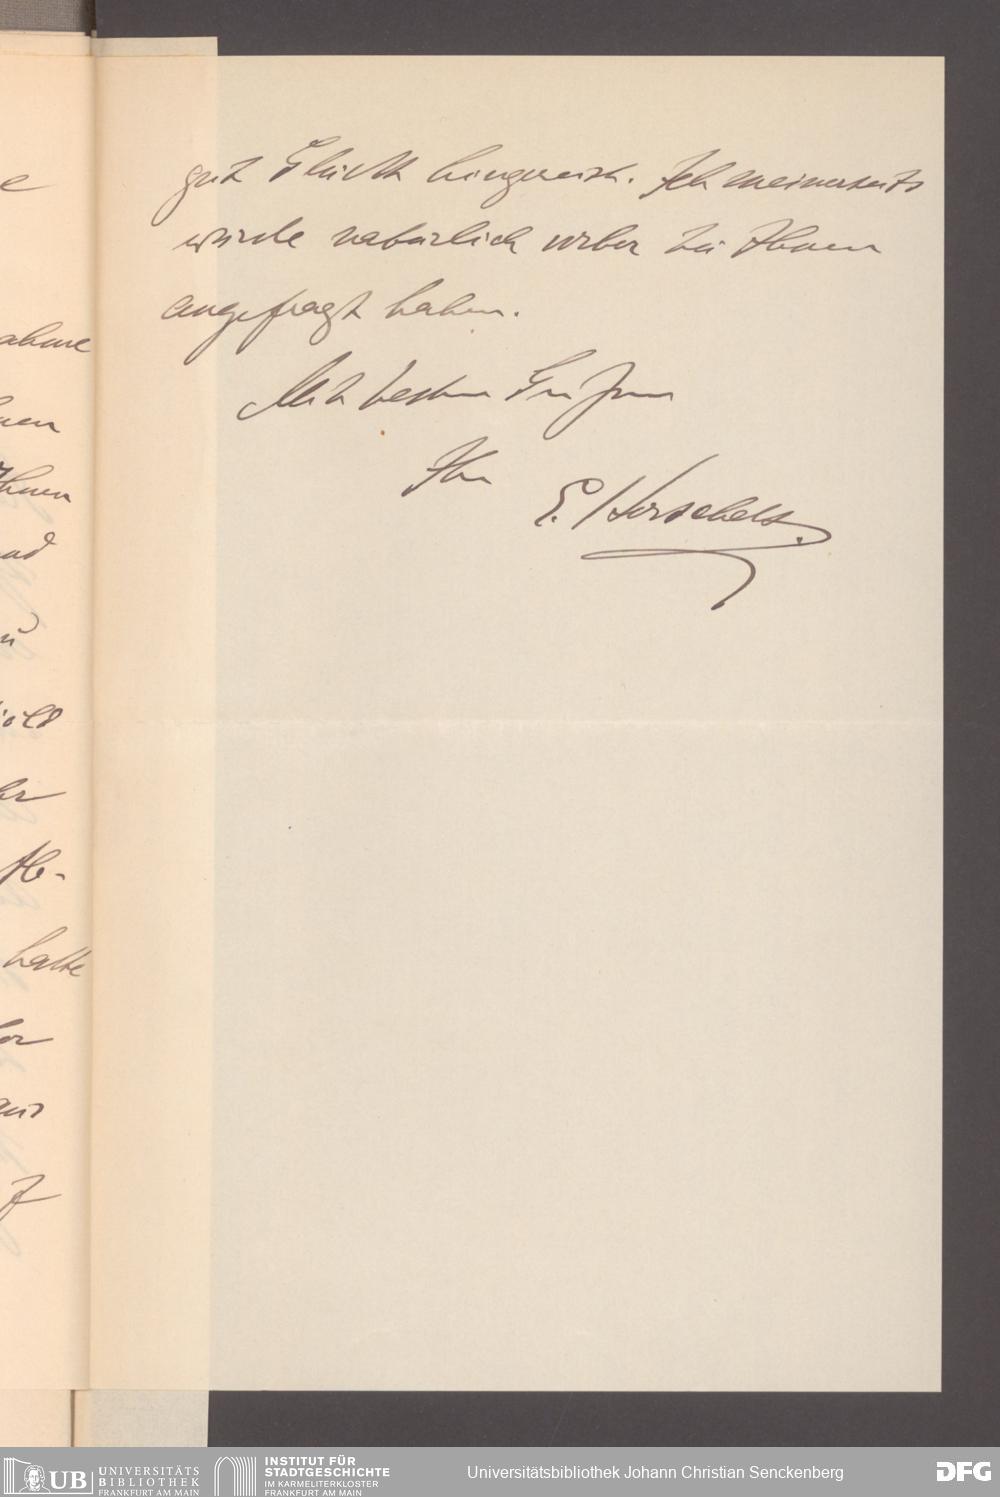 gut Glück hingereist. Ich meinerseits
würde natürlich vorher bei Ihnen
angefragt haben.
Mit besten Grüßen
Ihr
E.
e
ahme
nen
Ihnen
nd
hatte
UB UNIVERSITÄTS
BIBLIOTHEK
FRANKFURT AM MAIN
INSTITUT FÜR
STADTGESCHICHTE
IM KARMELITERKLOSTER
FRANKFURT AM MAIN
Universitätsbibliothek Johann Christian Senckenberg
DFG